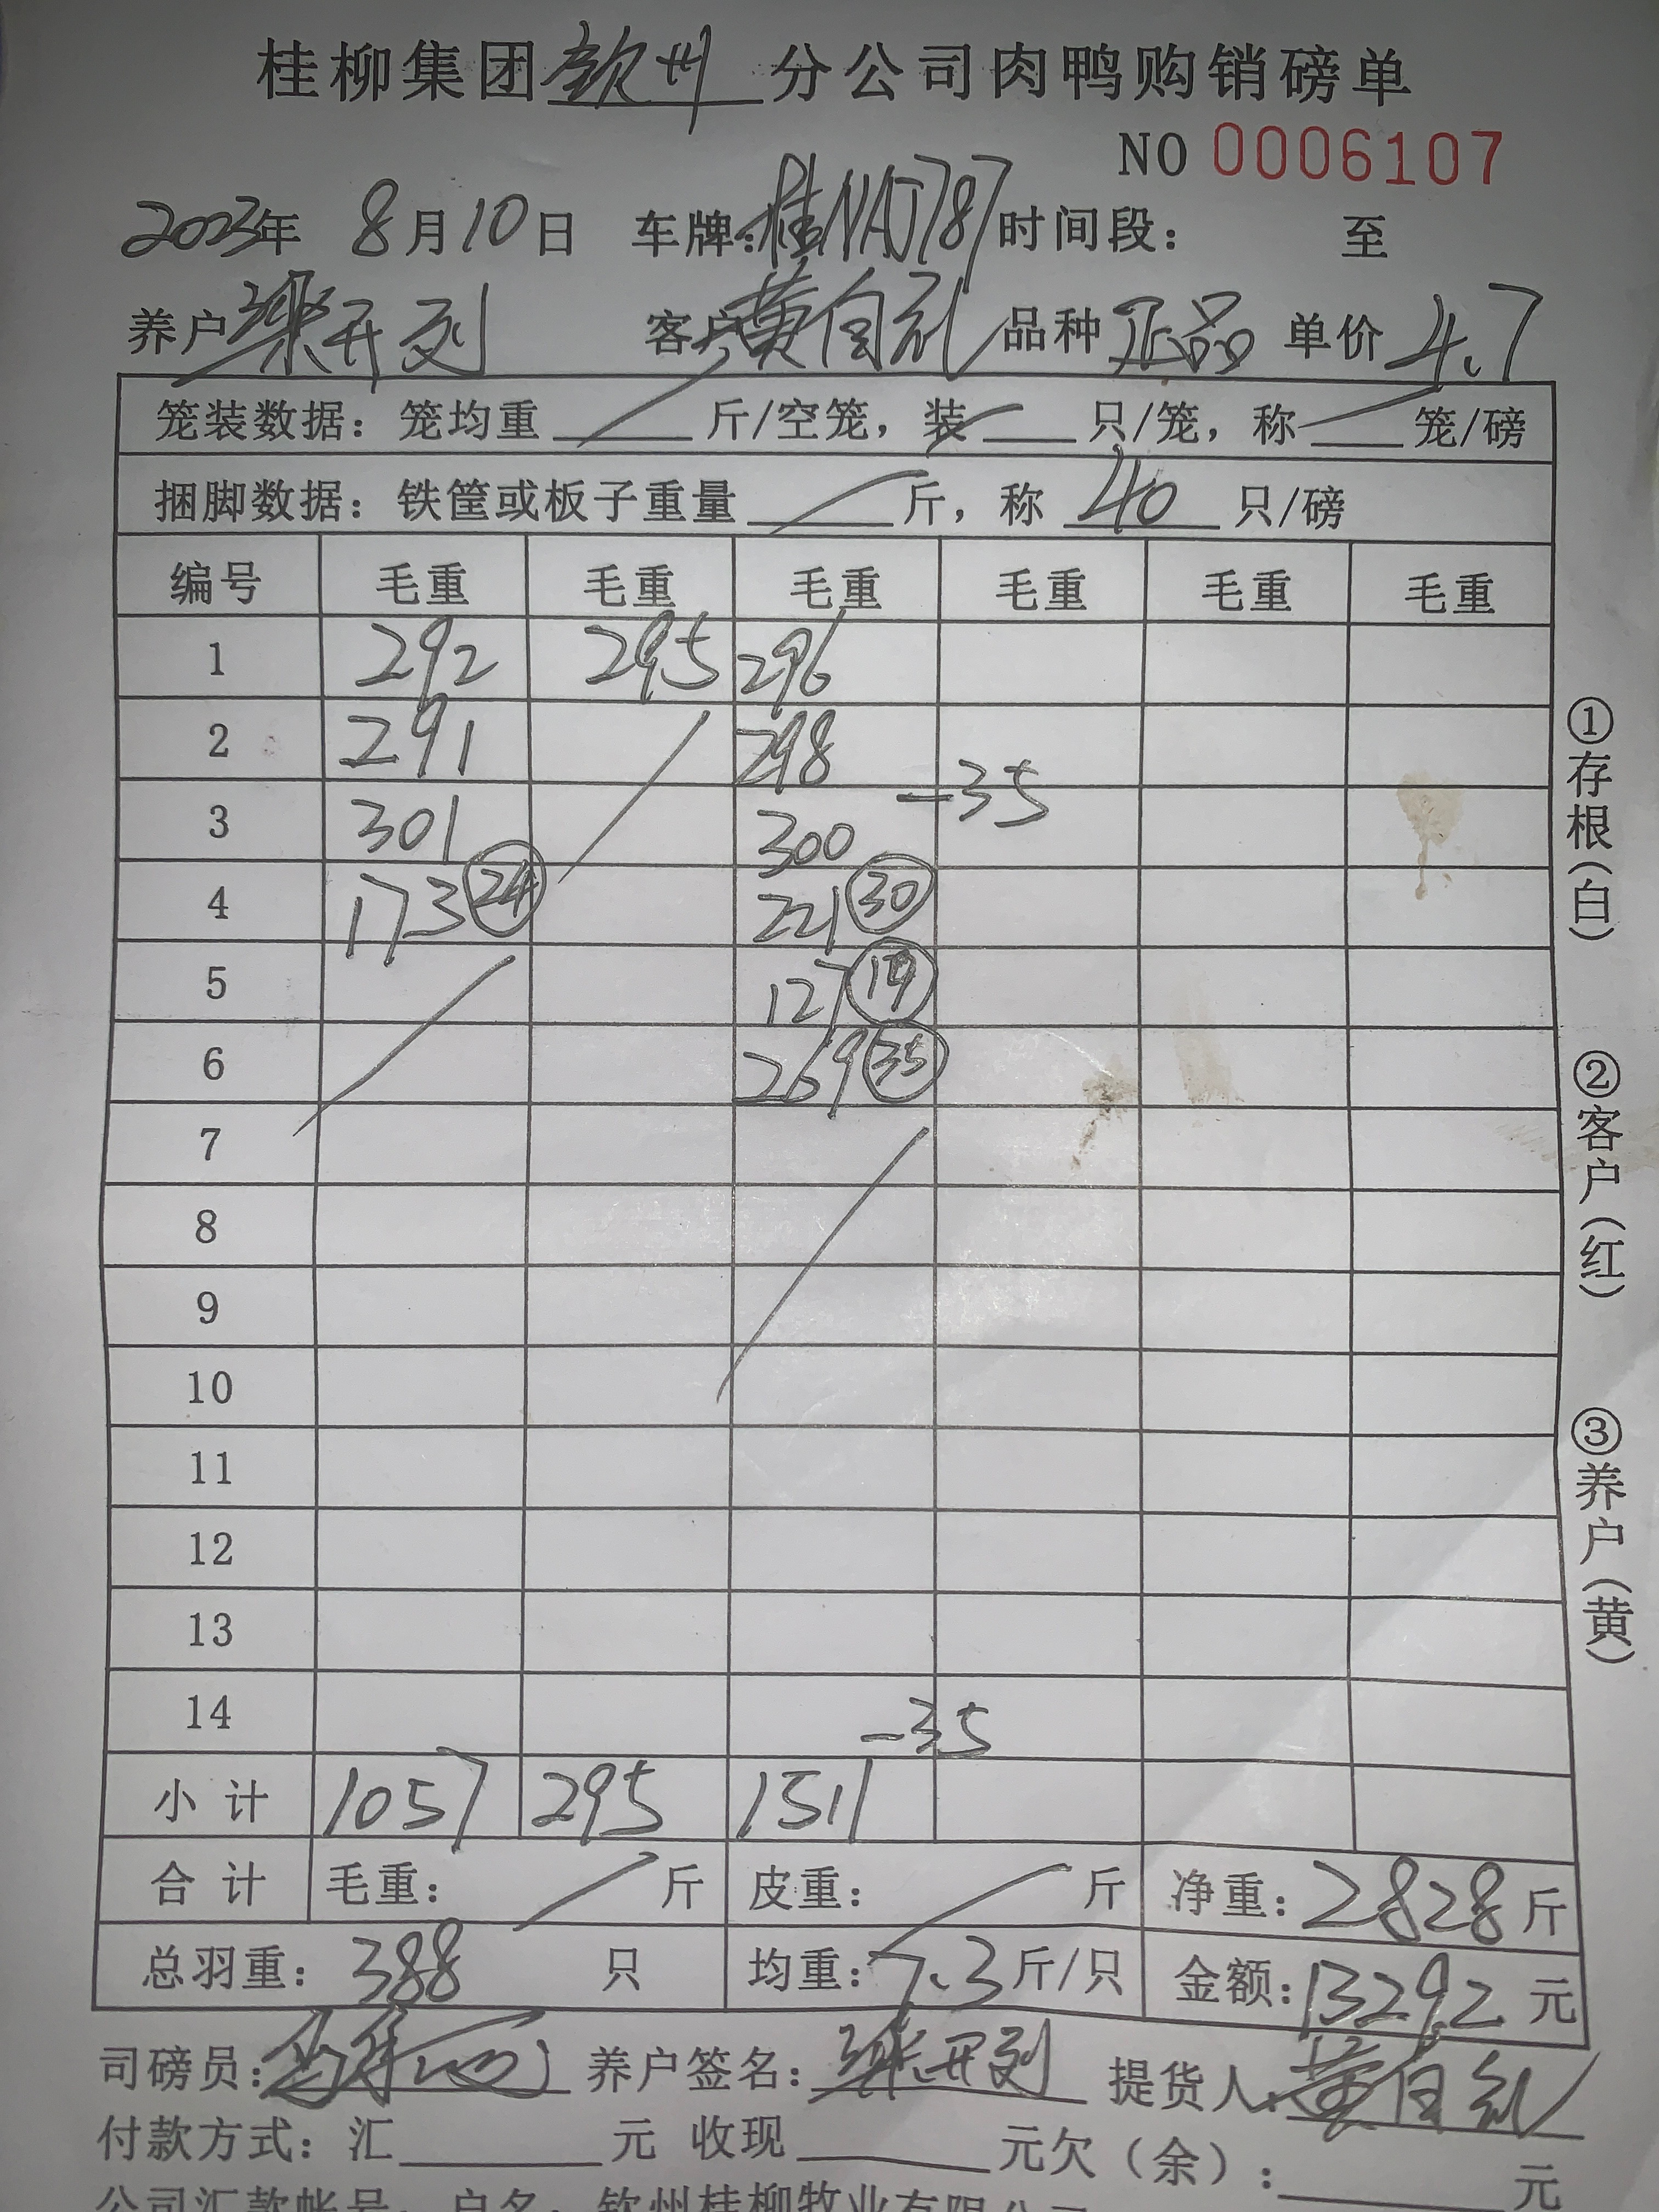 桂柳集团钦州分公司肉鸭购销磅单
NO 0006107
2023年 8月10日 车牌:桂NAJ787 时间段: 至
养户 梁开列 客户 黄自礼 品种 正品 单价 4.7
笼装数据: 笼均重 斤/空笼, 装 只/笼, 称 笼/磅
捆脚数据: 铁筐或板子重量 斤, 称 40 只/磅
编号 毛重 毛重 毛重 毛重 毛重 毛重
1 292 295 296
2 291 298
-35
3 301 300
4 173 24 221 30
5 127 19
6 269 35
7
8
9
10
11
12
13
14 -35
小计 1057 295 1511
合计 毛重: 斤 皮重: 斤 净重: 2828 斤
总羽重: 388 只 均重: 7.3 斤/只 金额: 13292 元
司磅员: 养户签名: 梁开列 提货人: 黄自礼
付款方式: 汇 元 收现 元欠(余): 元
公司汇款帐号: 户名: 钦州桂柳牧业有限公司
①存根(白)
②客户(红)
③养户(黄)